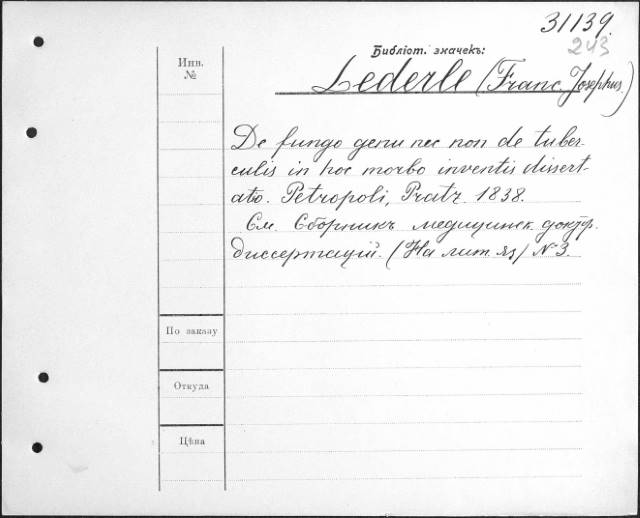 31139.
243
Библіот. значекъ:
Инв.
№
Lederle (Franc. Josephus.)
De fungo genu nec non de tuber-
culis in hoc morbo inventis dissert-
atio. Petropoli, Pratz. 1838.
См. Сборникъ медицинск. доктр.
диссертацій. (На лит. яз) № 3.
По заказу
Откуда
Цѣна